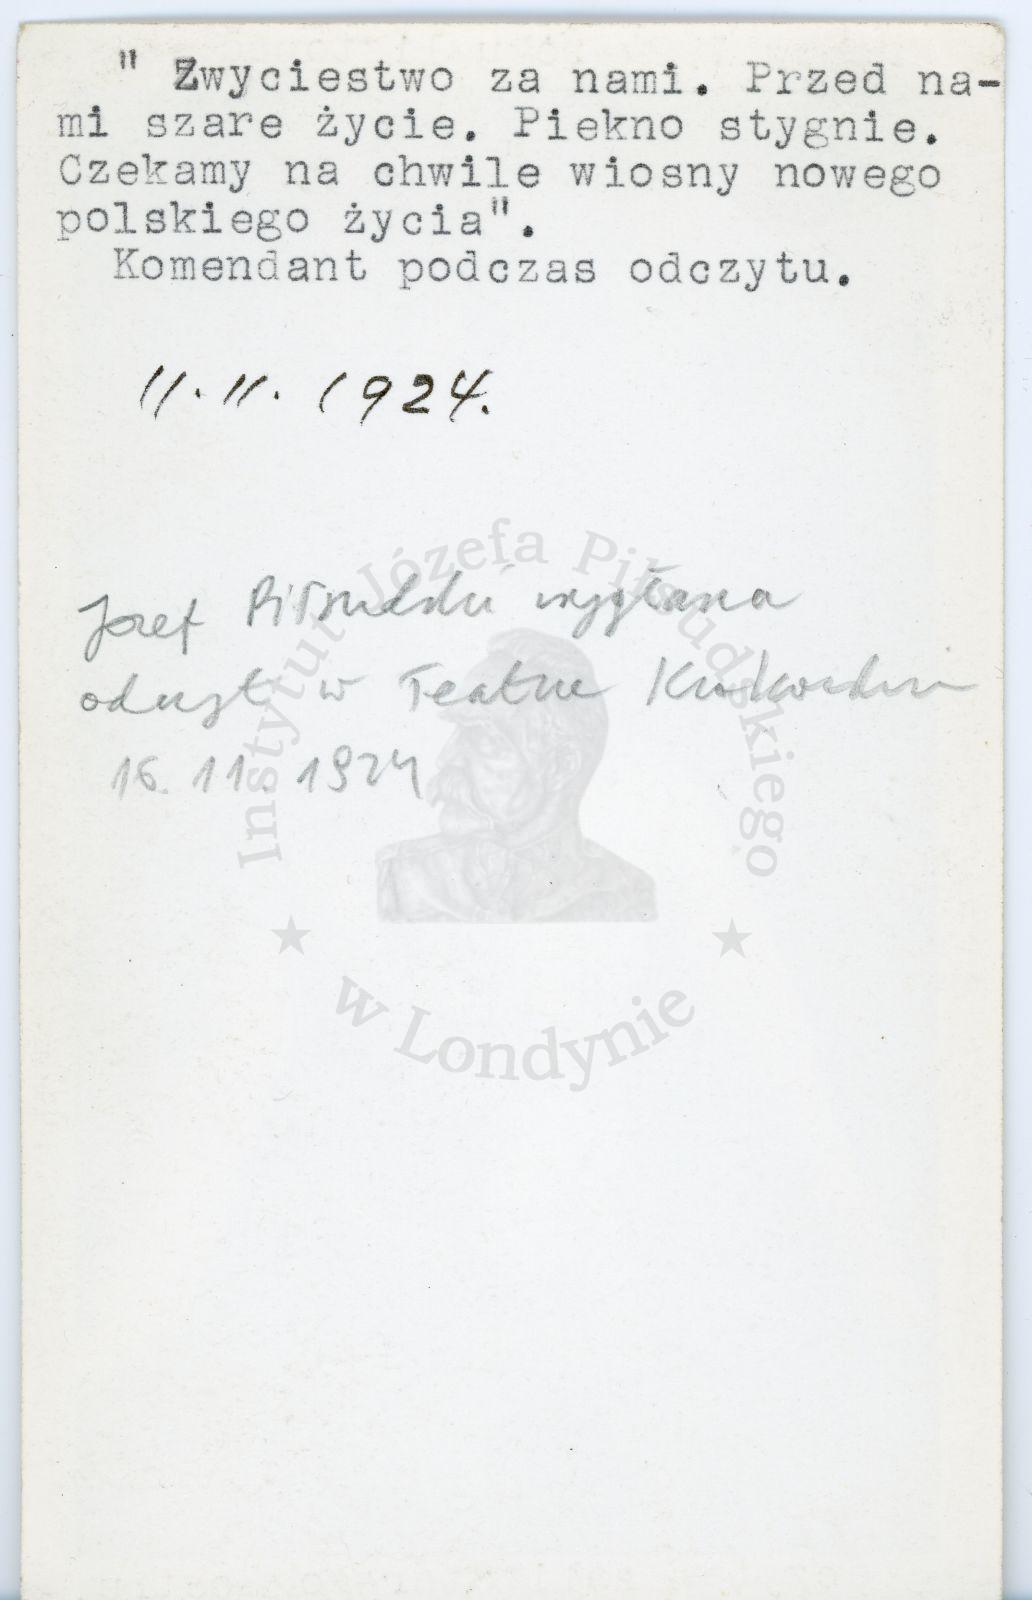 " Zwyciestwo za nami. Przed na-
mi szare życie. Piekno stygnie.
Czekamy na chwile wiosny nowego
polskiego życia".
Komendant podczas odczytu.
11.11.1924.
Józef Piłsudski wygłasza
odczyt w Teatrze Krakowskim
16.11.1924
Instytut Józefa Piłsudskiego
w Londynie